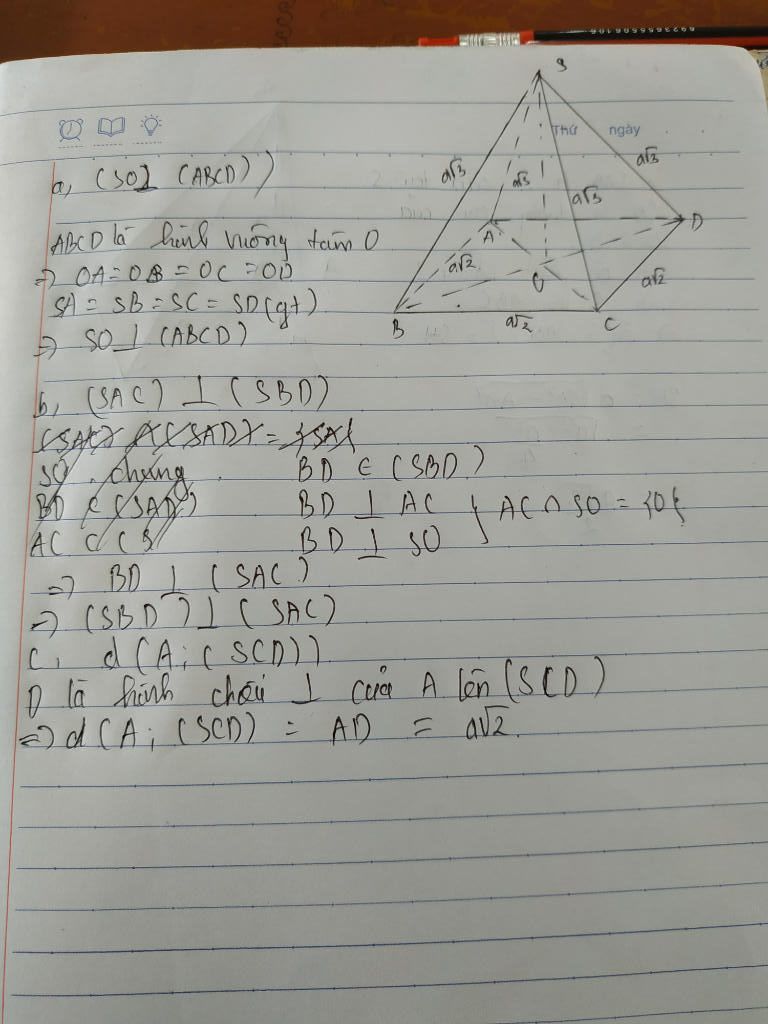 S
Thứ ngày
a√3
a√3
a√3
a√3
A
D
a√2
O
a√2
B
a√2
C
a, (SO⊥ (ABCD))
ABCD là hình vuông tâm O
=> OA = OB = OC = OD
SA = SB = SC = SD (gt)
=> SO ⊥ (ABCD)
b, (SAC) ⊥ (SBD)
(SAC) ∩ (SAD) = {SA}
SO chung BD ⊂ (SBD)
BD ⊂ (SAD) BD ⊥ AC } AC ∩ SO = {O}
AC ⊂ (S BD ⊥ SO
=> BD ⊥ (SAC)
=> (SBD) ⊥ (SAC)
C, d(A; (SCD))
D là hình chiếu ⊥ của A lên (SCD)
=> d(A; (SCD) = AD = a√2.